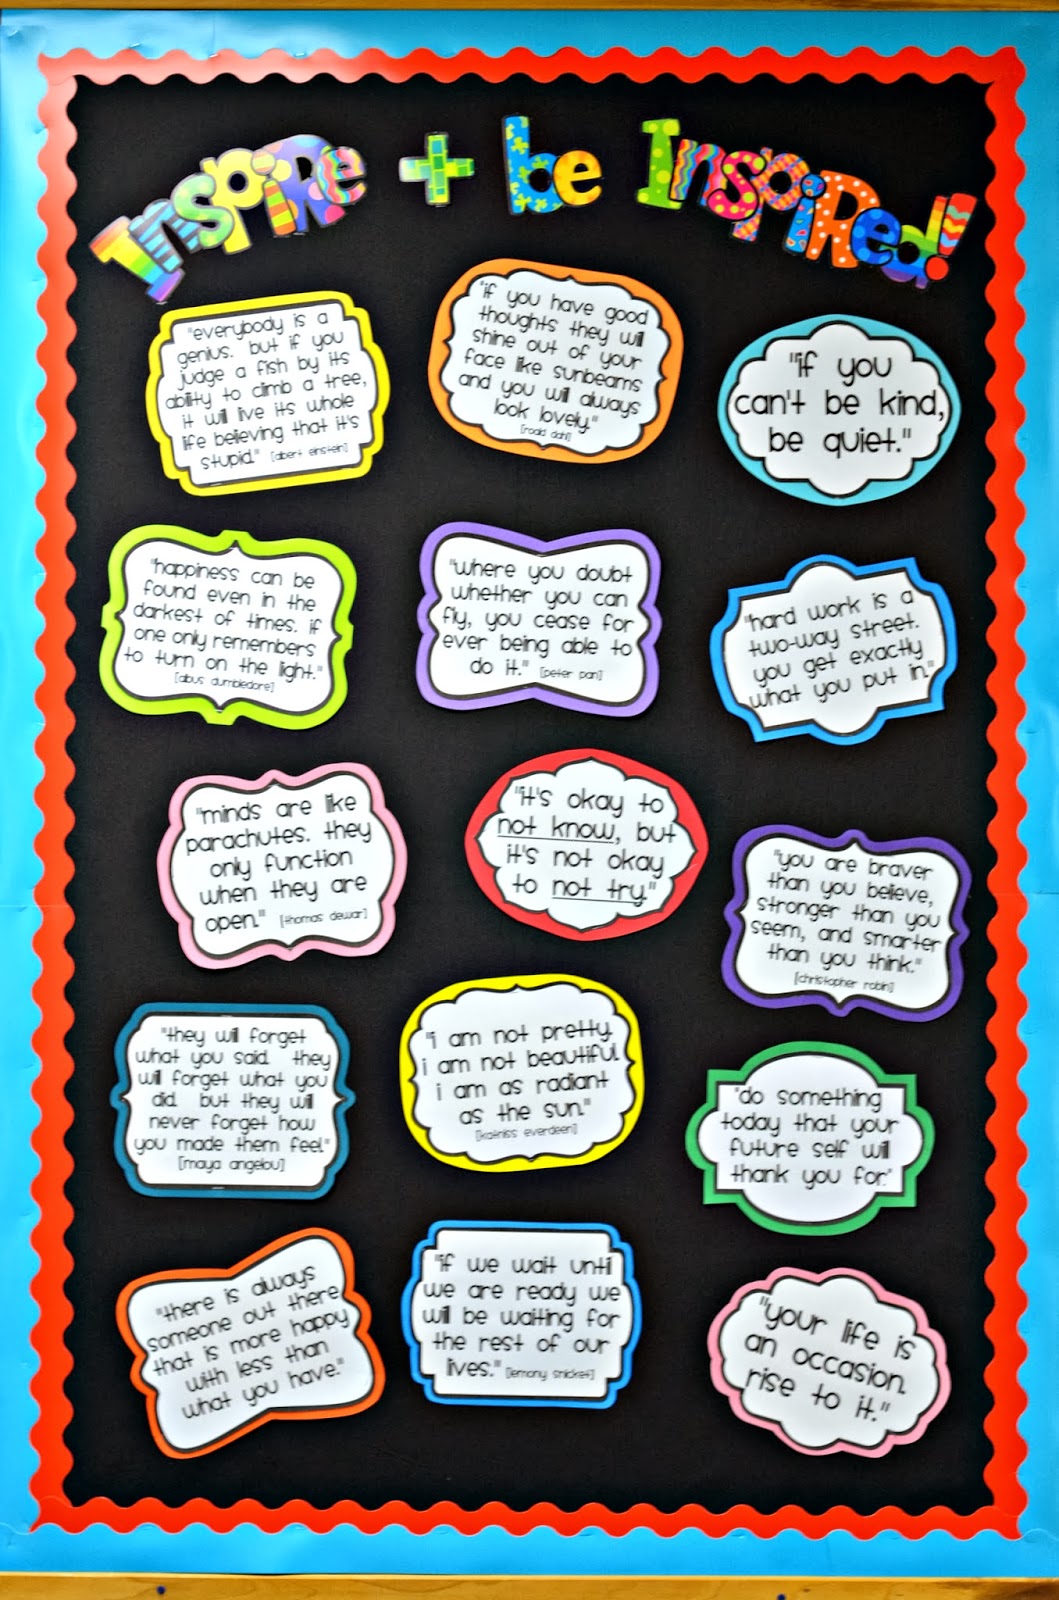 Inspire + be Inspired!
"everybody is a
genius. but if you
judge a fish by its
ability to climb a tree,
it will live its whole
life believing that it's
stupid." [albert einstein]
"if you have good
thoughts they will
shine out of your
face like sunbeams
and you will always
look lovely."
[roald dahl]
"if you
can't be kind,
be quiet."
"happiness can be
found even in the
darkest of times. if
one only remembers
to turn on the light."
[albus dumbledore]
"where you doubt
whether you can
fly, you cease for
ever being able to
do it." [peter pan]
"hard work is a
two-way street.
you get exactly
what you put in."
"minds are like
parachutes. they
only function
when they are
open." [thomas dewar]
"it's okay to
not know, but
it's not okay
to not try."
"you are braver
than you believe,
stronger than you
seem, and smarter
than you think."
[christopher robin]
"they will forget
what you said. they
will forget what you
did. but they will
never forget how
you made them feel."
[maya angelou]
"i am not pretty.
i am not beautiful.
i am as radiant
as the sun."
[katniss everdeen]
"do something
today that your
future self will
thank you for."
"there is always
someone out there
that is more happy
with less than
what you have."
"if we wait until
we are ready we
will be waiting for
the rest of our
lives." [lemony snicket]
"your life is
an occasion.
rise to it."